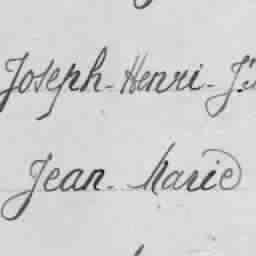 Joseph-Henri-
Jean-Marie